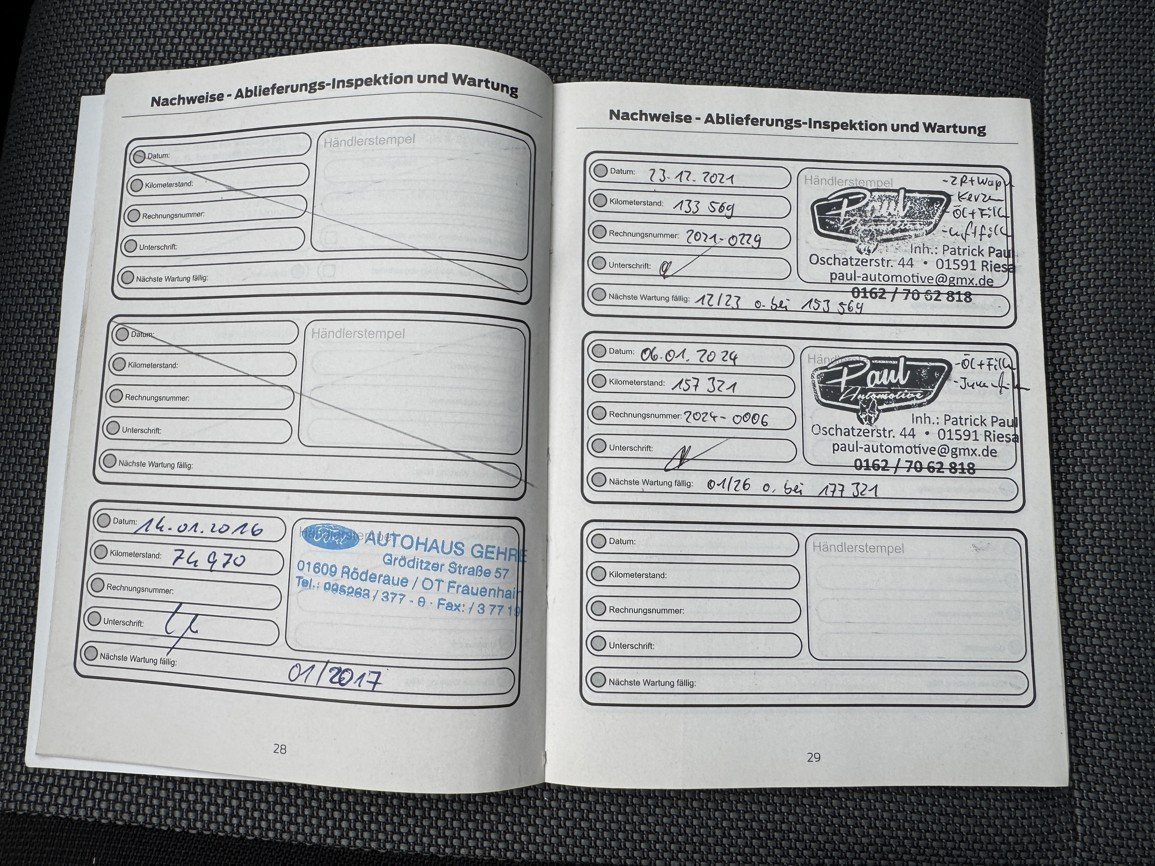 Nachweise - Ablieferungs-Inspektion und Wartung
Datum:
Händlerstempel
Kilometerstand:
Rechnungsnummer:
Unterschrift:
Nächste Wartung fällig:
Datum:
Händlerstempel
Kilometerstand:
Rechnungsnummer:
Unterschrift:
Nächste Wartung fällig:
Datum: 14.01.2016
Kilometerstand: 74970
Rechnungsnummer:
Unterschrift:
Nächste Wartung fällig: 01/2017
AUTOHAUS GEHRE
Gröditzer Straße 57
01609 Röderaue / OT Frauenhain
Tel.: 035263 / 377 - 0 · Fax: / 3 77 19
28
Nachweise - Ablieferungs-Inspektion und Wartung
Datum: 23.12.2021
Kilometerstand: 133 569
Rechnungsnummer: 2021-0229
Unterschrift:
Nächste Wartung fällig: 12/23 o. bei 153 569
Händlerstempel
- ZR+Wapu
- Kerzen
- Öl+Filt
- Luftfilt
Paul
Automotive
Inh.: Patrick Paul
Oschatzerstr. 44 • 01591 Riesa
paul-automotive@gmx.de
0162 / 70 62 818
Datum: 06.01.2024
Kilometerstand: 157 321
Rechnungsnummer: 2024-0006
Unterschrift:
Nächste Wartung fällig: 01/26 o. bei 177 321
- Öl+Filt
Paul
Automotive
Inh.: Patrick Paul
Oschatzerstr. 44 • 01591 Riesa
paul-automotive@gmx.de
0162 / 70 62 818
Datum:
Händlerstempel
Kilometerstand:
Rechnungsnummer:
Unterschrift:
Nächste Wartung fällig:
29